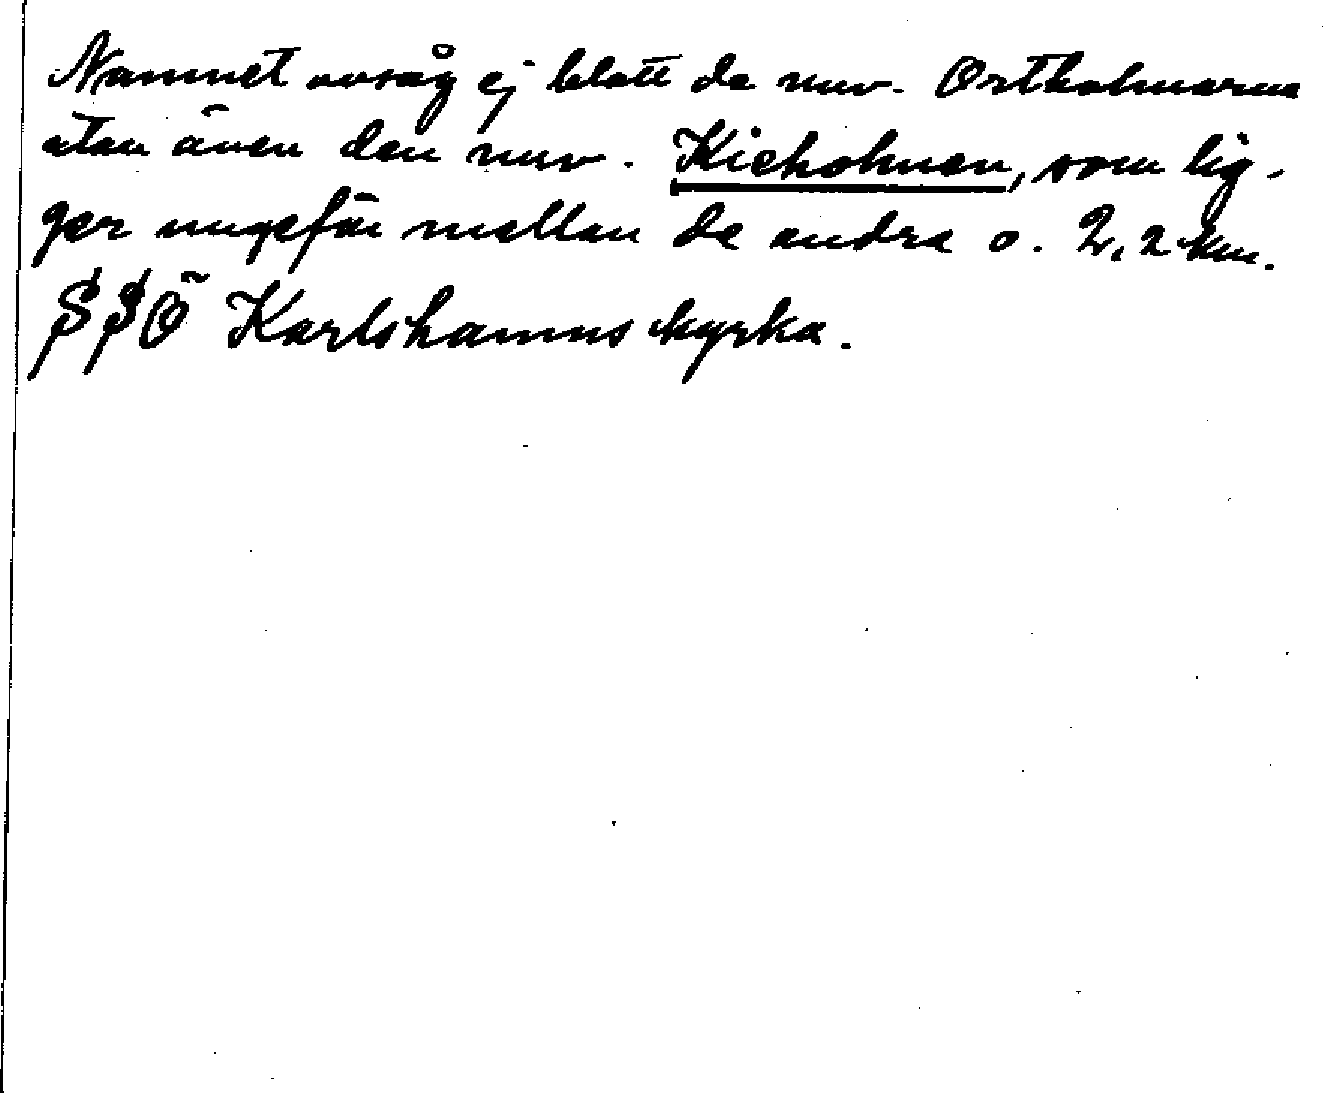 Namnet avsåg ej blott de nuv. Ortholmarna
utan även den nuv. Kieholmen, som lig-
ger ungefär mellan de andra o. 2,2 km.
SSÖ Karlshamns kyrka.